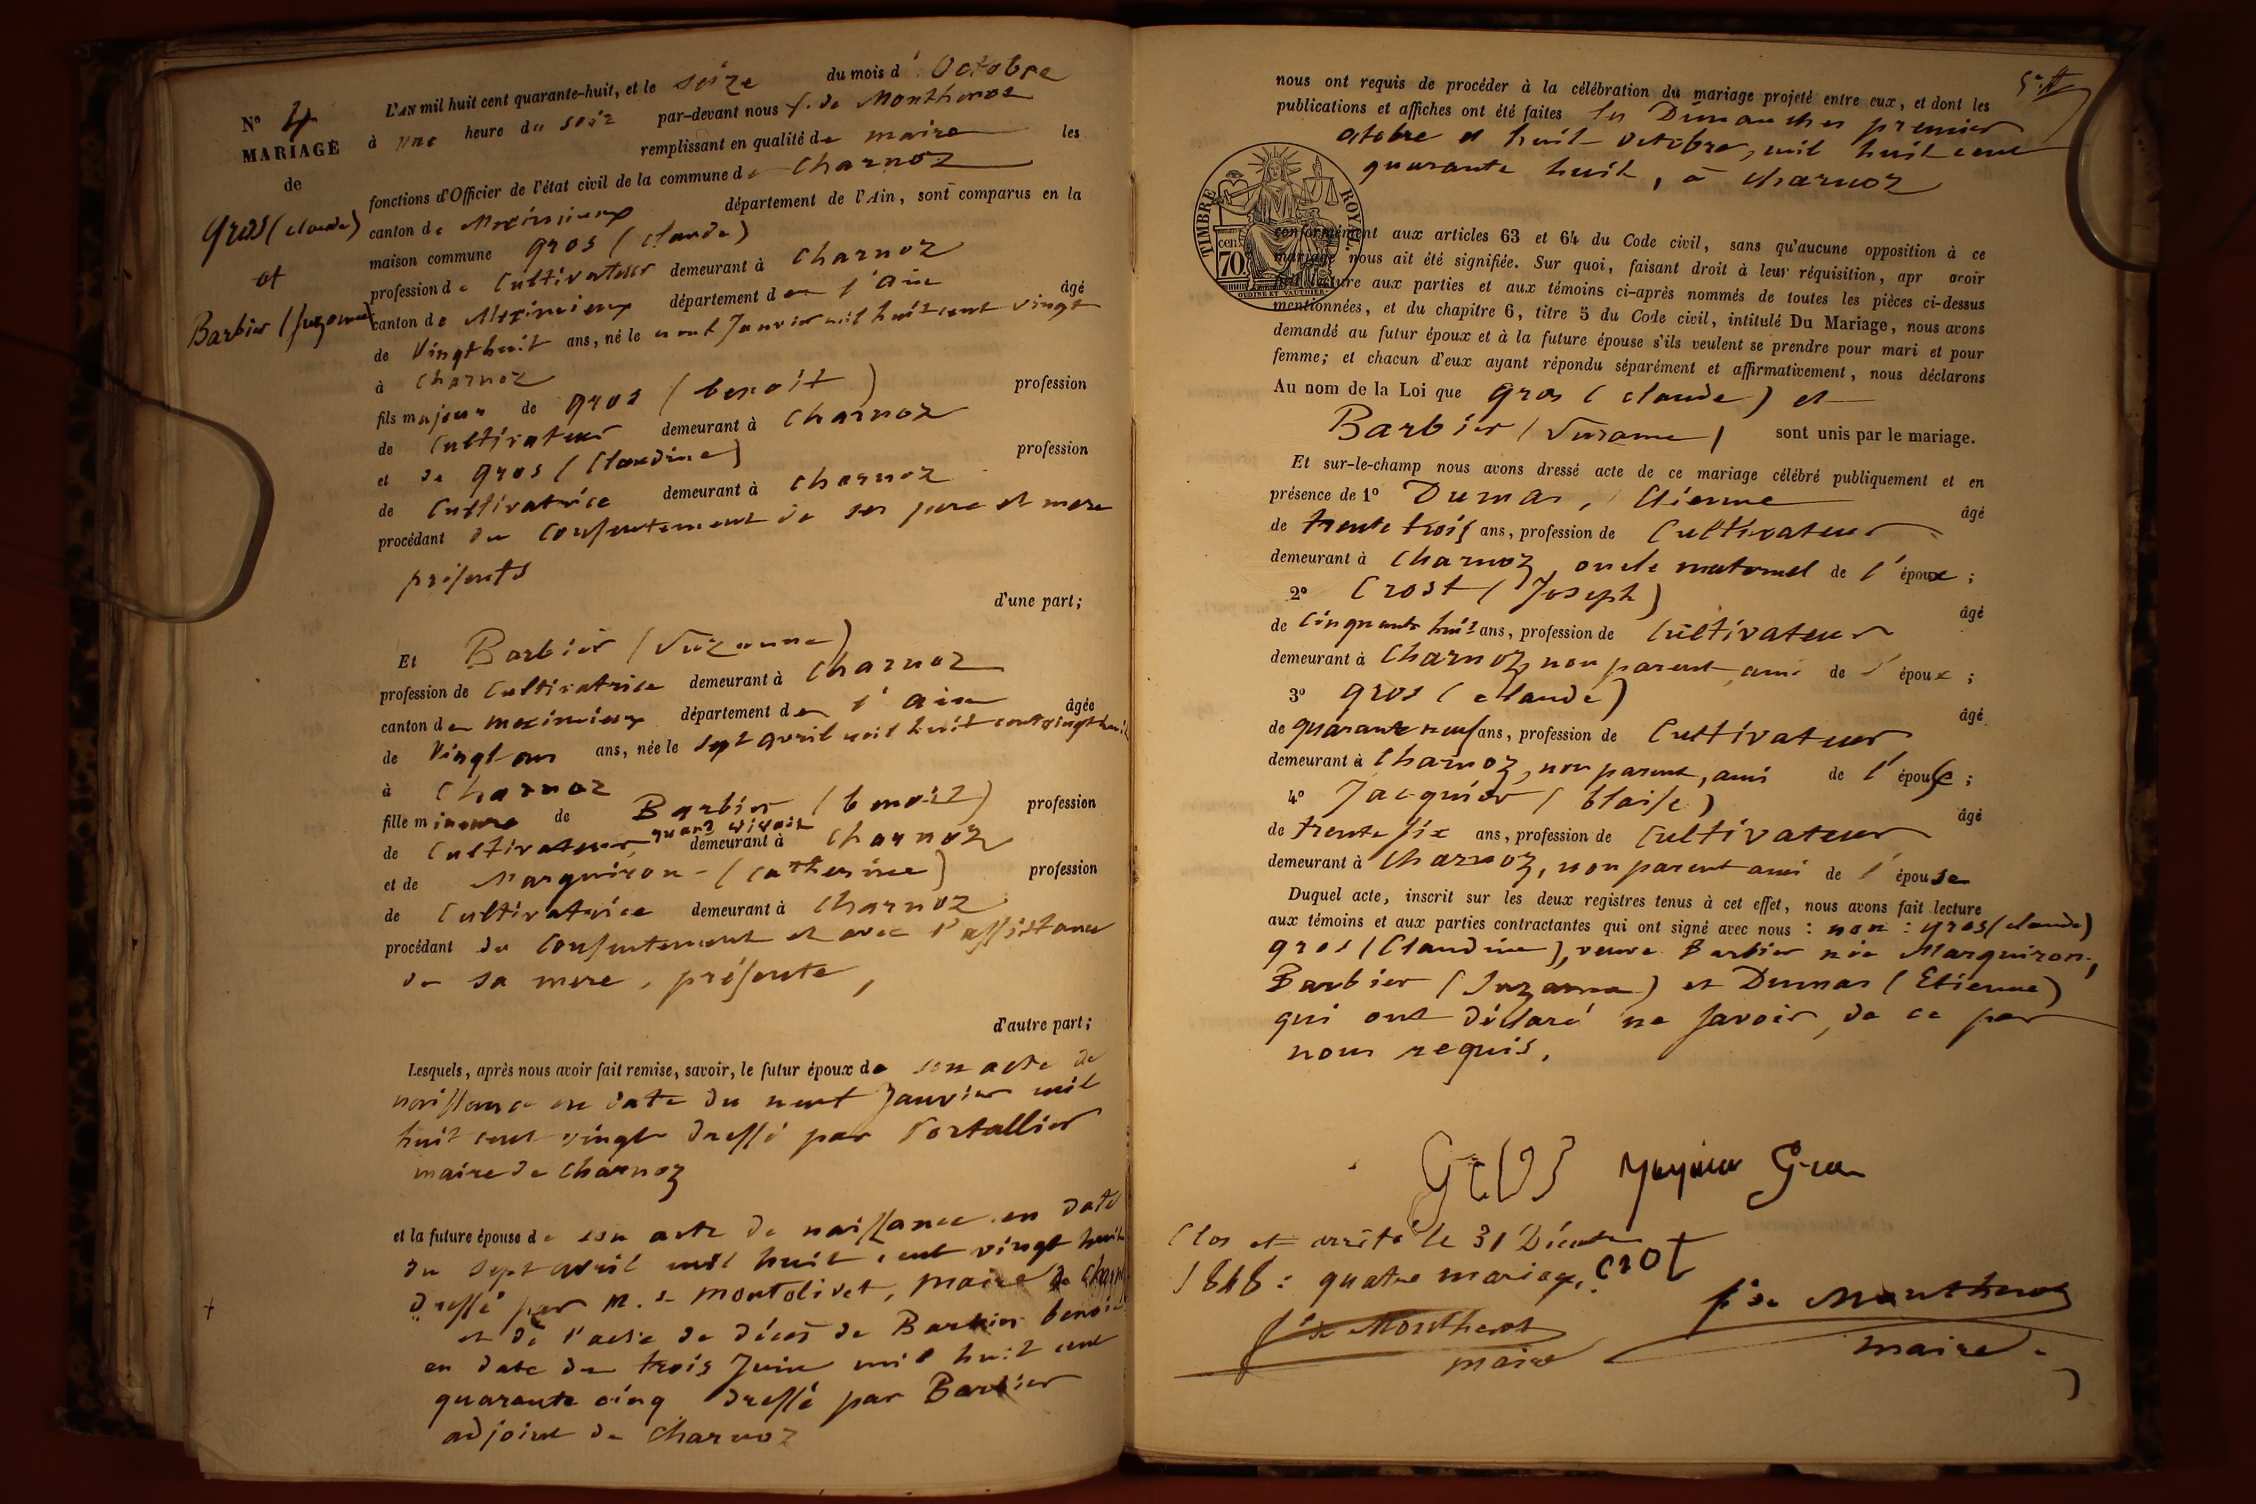 N° 4
MARIAGE
de
gros (claude)
et
Barbier (suzanne)
L'AN mil huit cent quarante-huit, et le seize du mois d'Octobre
à une heure du soir par-devant nous f. de Montherot
remplissant en qualité de maire les
fonctions d'Officier de l'état civil de la commune de Charnoz
canton de Meximieux département de l'Ain, sont comparus en la
maison commune gros (claude)
profession de Cultivateur demeurant à Charnoz
canton de Meximieux département de l'ain âgé
de Vingt huit ans, né le neuf Janvier mil huit cent vingt
à Charnoz
fils majeur de gros (benoît) profession
de Cultivateur demeurant à Charnoz
et de gros (Claudine) profession
de Cultivatrice demeurant à Charnoz
procédant du consentement de ses pere et mere
présents
d'une part;
Et Barbier (Suzanne)
profession de Cultivatrice demeurant à Charnoz
canton de meximieux département de l'ain âgée
de Vingt ans ans, née le sept avril mil huit cent vingt huit
à Charnoz
fille mineure de Barbier (benoit) profession
de Cultivateur quand vivait demeurant à Charnoz
et de Marguiron (Catherine) profession
de Cultivatrice demeurant à Charnoz
procédant du consentement et avec l'assistance
de sa mere, présente,
d'autre part;
Lesquels, après nous avoir fait remise, savoir, le futur époux de son acte de
naissance en date du neuf Janvier mil
huit cent vingt dressé par Portallier
maire de Charnoz
et la future épouse de son acte de naissance en date
du sept avril mil huit cent vingt huit
dressé par m. de montolivet, maire de Charnoz
et de l'acte de décès de Barbier benoit
en date du trois Juin mil huit cent
quarante cinq dressé par Barbier
adjoint de Charnoz
nous ont requis de procéder à la célébration du mariage projeté entre eux, et dont les
publications et affiches ont été faites les Dimanches premier
octobre et huit octobre, mil huit cent
quarante huit, à Charnoz
TIMBRE ROYAL
70 cen.
OUDINÉ ET VAUTHIER
conformément aux articles 63 et 64 du Code civil, sans qu'aucune opposition à ce
mariage nous ait été signifiée. Sur quoi, faisant droit à leur réquisition, apr avoir
fait lecture aux parties et aux témoins ci-après nommés de toutes les pièces ci-dessus
mentionnées, et du chapitre 6, titre 5 du Code civil, intitulé Du Mariage, nous avons
demandé au futur époux et à la future épouse s'ils veulent se prendre pour mari et pour
femme; et chacun d'eux ayant répondu séparément et affirmativement, nous déclarons
Au nom de la Loi que gros (claude) et
Barbier (Suzanne) sont unis par le mariage.
Et sur-le-champ nous avons dressé acte de ce mariage célébré publiquement et en
présence de 1° Dumas, Etienne âgé
de trente trois ans, profession de Cultivateur
demeurant à Charnoz, oncle maternel de l'époux;
2° Crost (Joseph) âgé
de Cinquante huit ans, profession de Cultivateur
demeurant à Charnoz, non parent, ami de l'époux;
3° gros (claude) âgé
de quarante neuf ans, profession de Cultivateur
demeurant à Charnoz, non parent, ami de l'épouse;
4° Jacquier (blaise) âgé
de trente six ans, profession de Cultivateur
demeurant à Charnoz, non parent ami de l'épouse
Duquel acte, inscrit sur les deux registres tenus à cet effet, nous avons fait lecture
aux témoins et aux parties contractantes qui ont signé avec nous : non : gros (claude)
gros (Claudine), veuve Barbier née Marguiron,
Barbier (Suzanne) et Dumas (Etienne)
qui ont déclaré ne savoir, de ce par
nous requis.
Gros
Clos et arrêté le 31 Décembre
1848 : quatre mariages. Crot
f. de Montherot
maire
f. de Montherot
maire